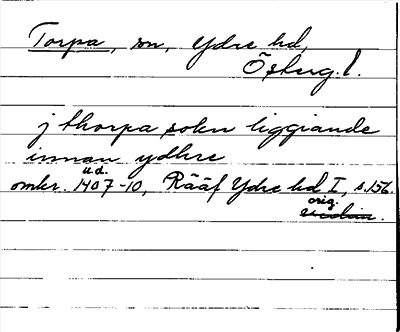 Torpa, sn, Ydre hd,
Östurg. l.
j thorpa sokn liggiande
innan ydhre
u.d.
omkr. 1407-10, Rääf Ydre hd I, s. 156.
orig.